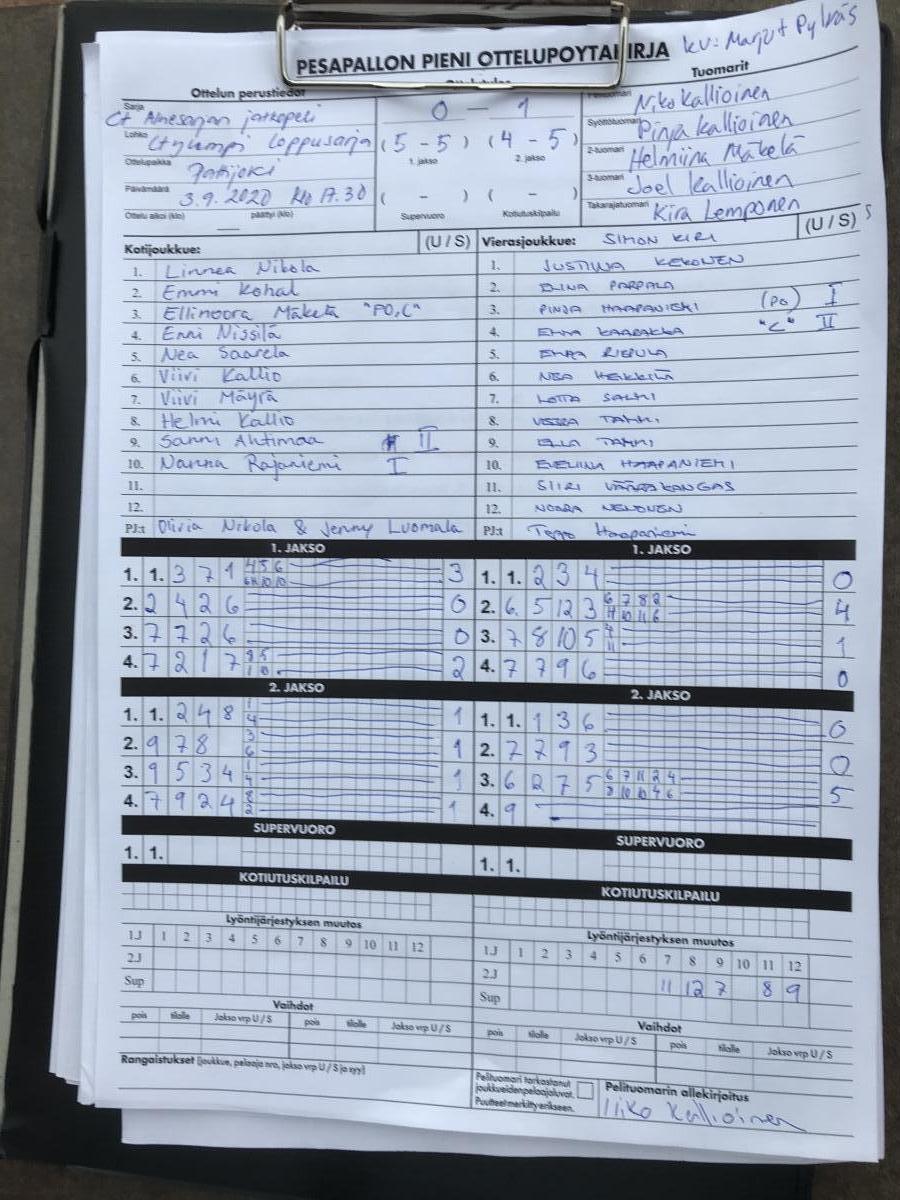 PESAPALLON PIENI OTTELUPÖYTÄKIRJA KV: Marjut Pylväs
Ottelun perustiedot
Tuomarit
Sarja
jatkopeli
0 - 1
Niko Kallioinen
Lohko
loppusarja
(5 - 5) (4 - 5)
Syöttötuomari Pinja Kallioinen
1. jakso 2. jakso
Ottelupaikka Patijoki
2-tuomari Helmiina Mäkelä
Päivämäärä 3.9.2020 klo 17.30
( - ) ( - )
3-tuomari Joel Kallioinen
Ottelu alkoi (klo) päättyi (klo)
Supervuoro Kotiutuskilpailu
Takarajatuomari Kira Lemponen
Kotijoukkue: (U / S)
Vierasjoukkue: SIMON KIRI (U / S) S
1. Linnea Nikola
2. Emmi Kohal
3. Ellinoora Mäkelä "PO,C"
4. Enni Nissilä
5. Nea Saarela
6. Viivi Kallio
7. Viivi Mäyrä
8. Helmi Kallio
9. Sanni Ahtimaa II
10. Nanna Rajaniemi I
11.
12.
PJ:t Olivia Nikola & Jenny Luomala
1. JUSTIINA KEKONEN
2. ELINA PARPALA
3. PINJA HAAPANIEMI (PO) I
4. EMMA KAARAKKA "C" II
5. RIEPULA
6. NEA HEIKKILÄ
7. LOTTA SALMI
8. VEERA TAMMI
9. ELLA TAMMI
10. EVELIINA HAAPANIEMI
11. SIIRI VÄÄRÄKANGAS
12. NOORA
PJ:t Teppo Haapaniemi
1. JAKSO
1. 1. 3 7 1 4 5 6 3
10 10
2. 2 4 2 6 0
3. 7 7 2 6 0
4. 7 2 1 7 2
1. JAKSO
1. 1. 2 3 4 0
2. 6 5 12 3 6 7 8 2 4
11 10 11 6
3. 7 8 10 5 4 1
11
4. 7 7 9 6 0
2. JAKSO
1. 1. 2 4 8 1 1
4
2. 9 7 8 3 1
6
3. 9 5 3 4 1 1
4
4. 7 9 2 4 8 1
2
2. JAKSO
1. 1. 1 3 6 0
2. 7 7 9 3 0
3. 6 2 7 5 6 7 11 2 4 5
8 10 10 4 6
4. 9
SUPERVUORO
1. 1.
SUPERVUORO
1. 1.
KOTIUTUSKILPAILU
KOTIUTUSKILPAILU
Lyöntijärjestyksen muutos
1J 1 2 3 4 5 6 7 8 9 10 11 12
2J
Sup
Lyöntijärjestyksen muutos
1J 1 2 3 4 5 6 7 8 9 10 11 12
2J 11 12 7 8 9
Sup
Vaihdot
pois tilalle Jakso vrp U / S pois tilalle Jakso vrp U / S
Vaihdot
pois tilalle Jakso vrp U / S pois tilalle Jakso vrp U / S
Rangaistukset (joukkue, pelaaja nro, jakso vrp U / S ja syy)
Pelituomari tarkastanut
joukkueiden pelaajaluvat.
Puutteet merkitty erikseen.
Pelituomarin allekirjoitus
Niko Kallioinen